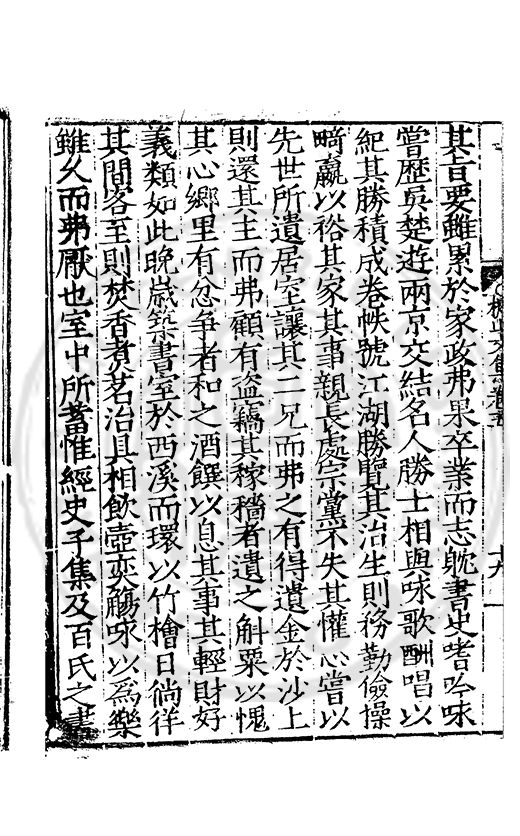 其旨要雖累於家政弗果卒業而志躭書史嗜吟咏
嘗歷吳楚遊兩京交結名人勝士相與咏歌酬唱以
紀其勝積成卷帙號江湖勝覽其治生則務勤儉操
畸羸以裕其家其事親長處宗黨不失其懽心嘗以
先世所遺居室讓其二兄而弗之有得遺金於沙上
則還其主而弗顧有盜竊其稼穡者遺之斛粟以愧
其心鄉里有忿爭者和之酒饌以息其事其輕財好
義類如此晚歲築書室於西溪而環以竹檜日徜徉
其間客至則焚香煮茗治具相飲壺奕觴咏以爲樂
雖久而弗厭也室中所蓄惟經史子集及百氏之書
十九